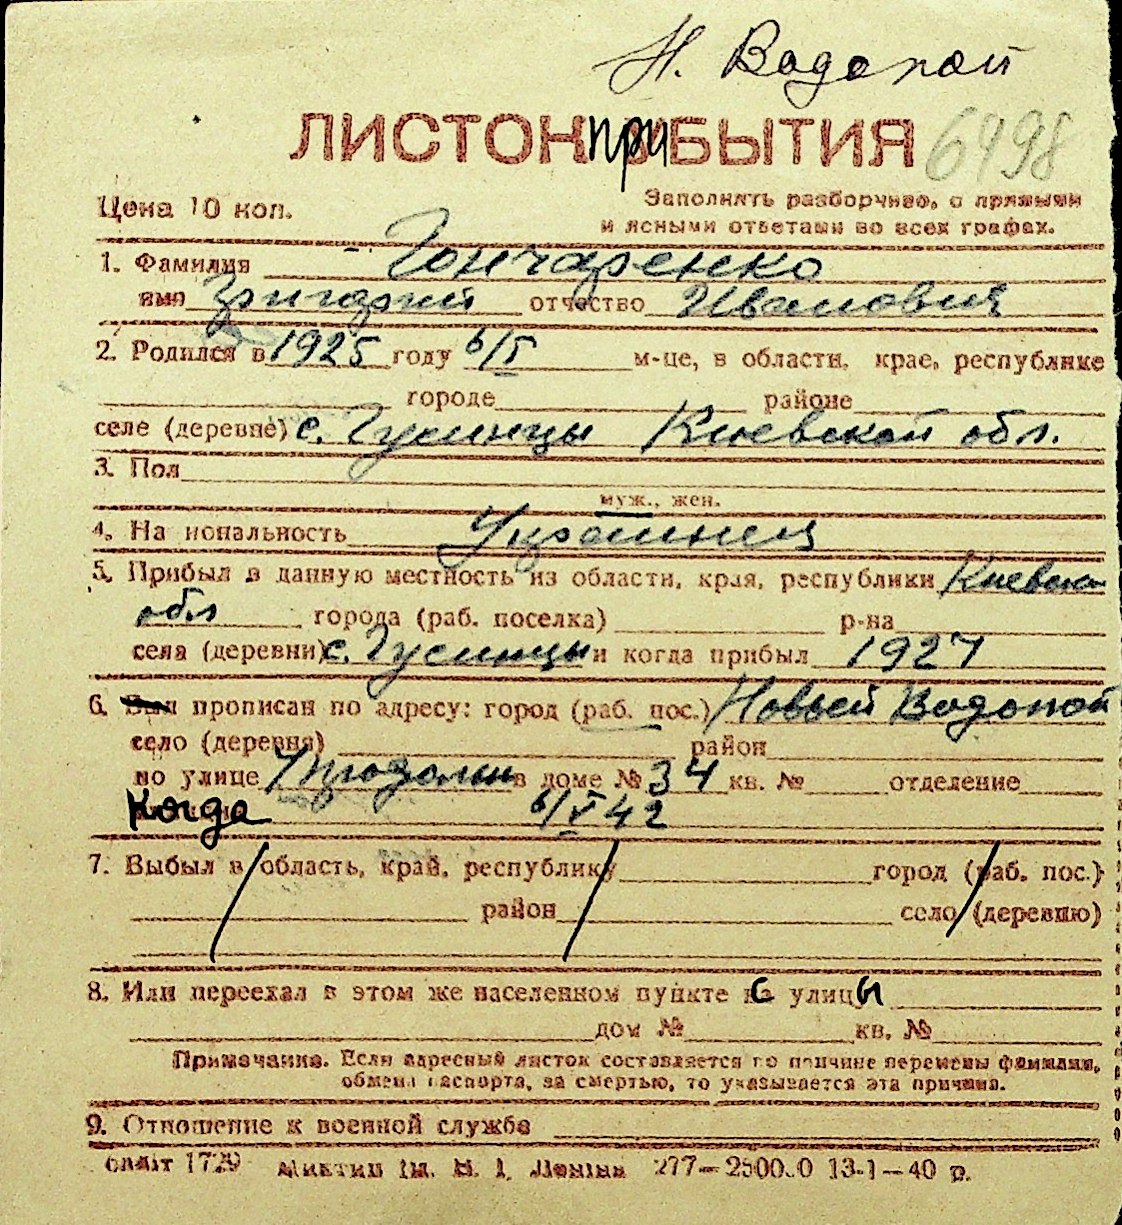 Н. Водопой
ЛИСТОК ПРИБЫТИЯ 6498
Цена 10 коп. Заполнять разборчиво, с прямыми
и ясными ответами во всех графах.
1. Фамилия Гончаренко
имя Григорий отчество Иванович
2. Родился в 1925 году 6/I м-це, в области, крае, республике
городе районе
селе (деревне) с. Гусинцы Киевской обл.
3. Пол
муж., жен.
4. Национальность Украинец
5. Прибыл в данную местность из области, края, республики Киевск
обл города (раб. поселка) р-на
села (деревни) с. Гусинцы и когда прибыл 1927
6. Был прописан по адресу: город (раб. пос.) Новый Водопой
село (деревня) район
по улице Продольн в доме № 34 кв. № отделение
Когда 6/V 42
7. Выбыл в область, край, республику город (раб. пос.)
район село (деревню)
8. Или переехал в этом же населенном пункте с улицы
дом № кв. №
Примечание. Если адресный листок составляется по причине перемены фамилии,
обмена паспорта, за смертью, то указывается эта причина.
9. Отношение к военной службе
1729 им. В. И. Ленина 277—25000 13-1—40 р.